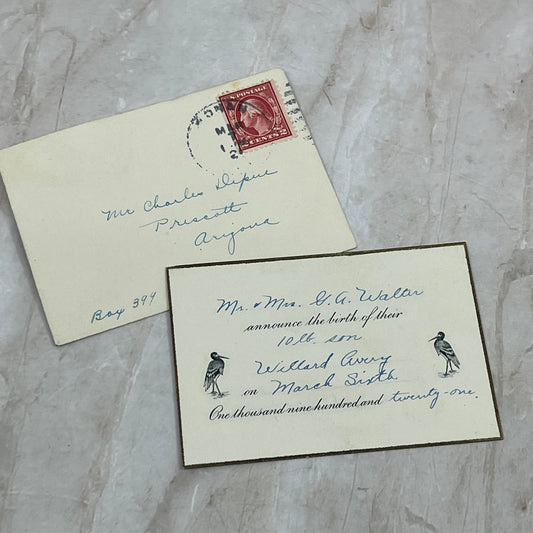 U.S. POSTAGE
2 CENTS 2
MAR
Mr Charles Depue
Prescott
Arizona
Box 399
Mr. & Mrs. G. A. Walter
announce the birth of their
10 lb. son
Willard Avery
on March Sixth
One thousand nine hundred and twenty-one.